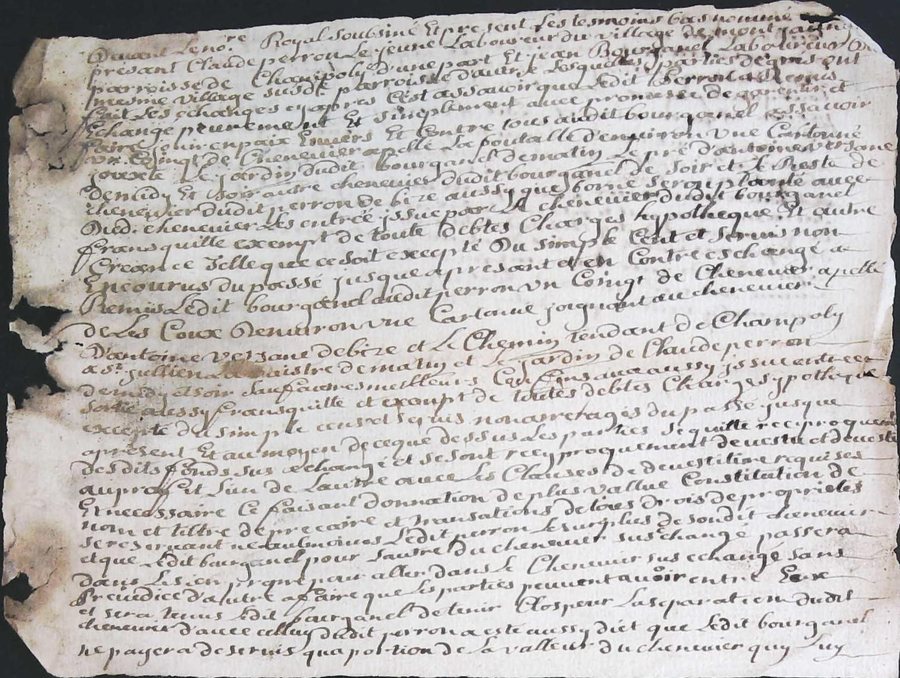 Devant Le no.re Royal soubsiné Et present Les tesmoins bas nommé
present Claude perron Le jeune Laboureur du village de montjarnix
parroisse de Champoly d'une part Et jean Bourganel Laboureur du
mesme village susde parroisse d'autre Lesquelles parties de gre ont
fait Les eschanges cy apres C'est assavoir que Ledit perron a Remis
Eschange purement Et simplement avec promesse de garentir et
faire jouir en paix Envers Et Contre tous audit bourganel assavoir
un Coingt de Chenevier apellé La poutalle d'environ une Cartonne
jouxte Le jardin dudit bourganel de matin Le pré d'antoine versane
de midy Et soir autre chenevier dudit bourganel de soir et Le Reste de
chenevier dudit perron de bize aussy que borne seron planté avec
Dud. chenevier Les entrée issue par Le chenevier dudit bourganel
franc quille exempt de toute debtes Charges hypotheque Et autre
Creance Telle que ce soit excepté Du simple Cent et servis non
Encourus du passé jusque a present et en Contre eschange a
Remis Ledit bourganel audit perron un Coingt de Chenevier apellé
de Las Coux Denviron une Cartonne joignant au chenevier
D'antoine versane de bize et Le Chemin tendant de Champoly
a St. jullien de matin et Le jardin de Claude perron
de midy et soir sauf autres meilleurs Confins avec aussy issue entrée et
sortie aussy franc quille et exempt de toutes debtes Charges ypotheque
excepté du simple cens et servis non arrerages du passé jusque
apresent Et au moyen de ce que dessus Les parties se quitte reciproquement
des dits fonds sus eschangé et se sont reciproquement devestu et devestis
au profit L'un de Lautre avec Les Clauses de devestiture requises
Et necessaire Ce faisant donnation de plus vallue Constitution de
nom et tiltre de precaire et transations de tous drois de proprietes
se reservant neaubmoins Ledit perron Le surplus de son dit chenevier
et que Ledit bourganel pour L'autre du chenevier sus changé passera
dans Le sien propre pour aller dans Le Chenevier sus echange sans
Prejudice d'autre afaire que Les parties peuvent avoir entre Eux
et sera tenus Ledit bourganel de tenir Clos pour La separation dudit
chenevier d'avec celluy dudit perron a esté aussy diet que Ledit bourganel
ne payera de servis qua portion de La valleur du chenevier quy Luy